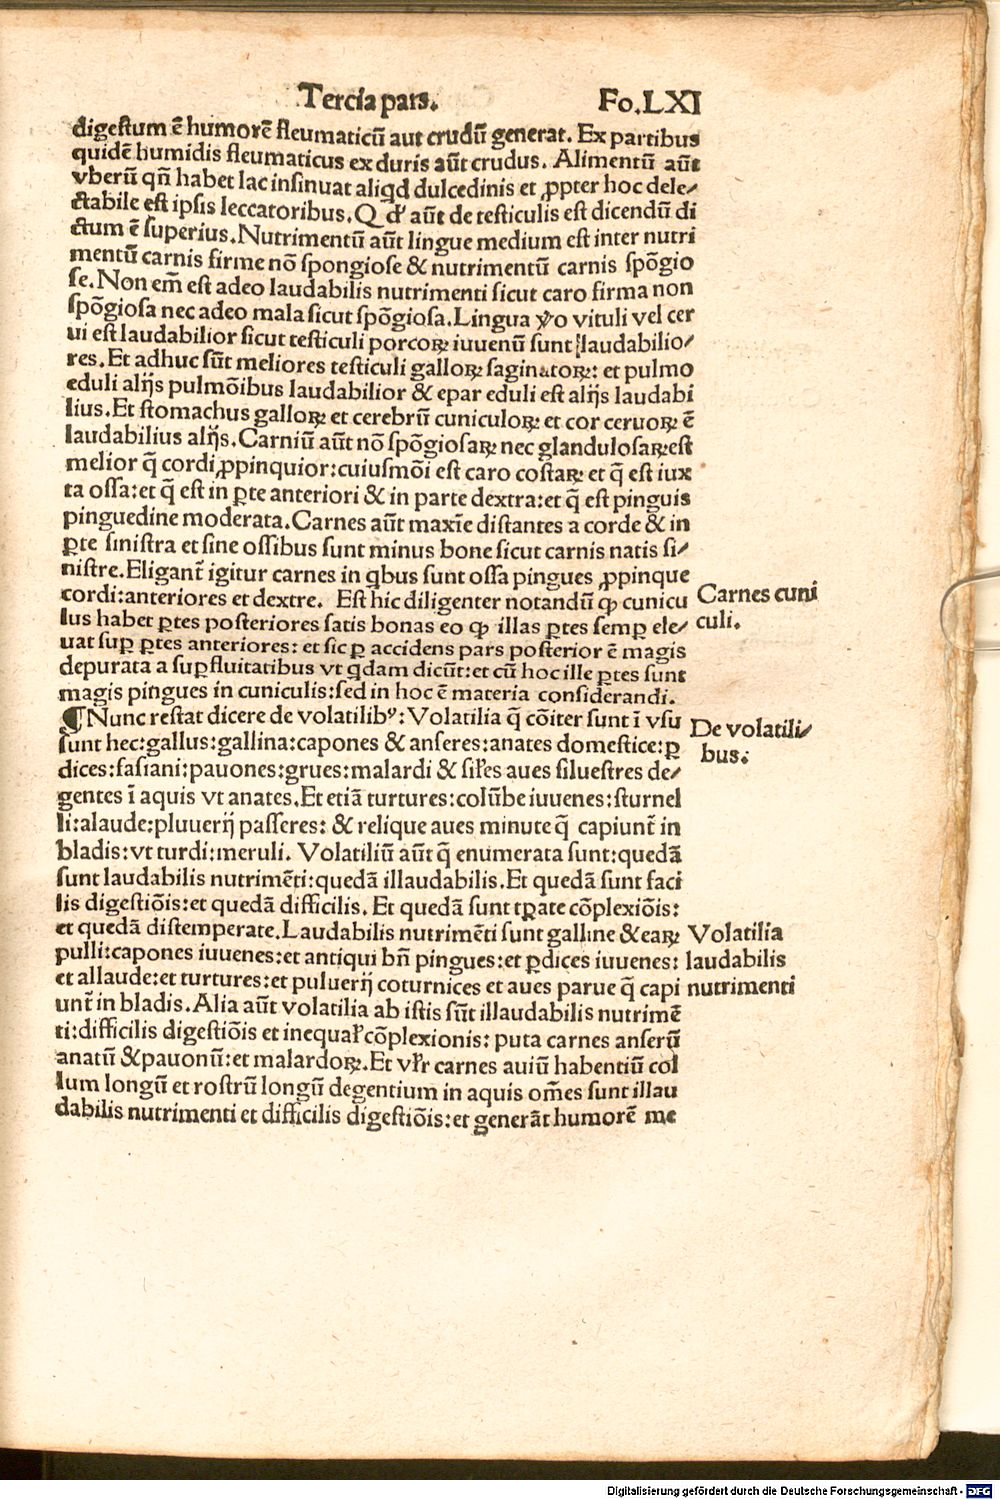 Tercia pars. Fo.LXI
digestum ē humorē fleumaticū aut crudū generat. Ex partibus
quidē humidis fleumaticus ex duris aūt crudus. Alimentū aūt
vberū qñ habet lac insinuat aliqd dulcedinis et ꝓpter hoc dele⸗
ctabile est ipsis leccatoribus. Q d' aūt de testiculis est dicendū di
ctum ē superius. Nutrimentū aūt lingue medium est inter nutri
mentū carnis firme nō spongiose & nutrimentū carnis spōgio
se. Non em̄ est adeo laudabilis nutrimenti sicut caro firma non
spōgiosa nec adeo mala sicut spōgiosa. Lingua ꝟo vituli vel cer
ui est laudabilior sicut testiculi porcoꝝ iuuenū sunt laudabilio⸗
res. Et adhuc sūt meliores testiculi galloꝝ saginatoꝝ: et pulmo
eduli alijs pulmōibus laudabilior & epar eduli est alijs laudabi
lius. Et stomachus galloꝝ et cerebrū cuniculoꝝ et cor ceruoꝝ ē
laudabilius alijs. Carniū aūt nō spōgiosaꝝ nec glandulosaꝝ est
melior q̄ cordi ꝓpinquior: cuiusmōi est caro costaꝝ et q̄ est iux
ta ossa: et q̄ est in ꝑte anteriori & in parte dextra: et q̄ est pinguis
pinguedine moderata. Carnes aūt maxīe distantes a corde & in
ꝑte sinistra et sine ossibus sunt minus bone sicut carnis natis si⸗
nistre. Eligant̄ igitur carnes in qbus sunt ossa pingues ꝓpinque
cordi: anteriores et dextre. Est hic diligenter notandū ꝙ cunicu
lus habet ꝑtes posteriores satis bonas eo ꝙ illas ꝑtes semꝑ ele⸗
uat suꝑ ꝑtes anteriores: et sic ꝑ accidens pars posterior ē magis
depurata a suꝑfluitatibus vt qdam dicūt: et cū hoc ille ꝑtes sunt
magis pingues in cuniculis: sed in hoc ē materia considerandi.
Carnes cuni
culi.
¶ Nunc restat dicere de volatilibꝰ: Volatilia q̄ cōiter sunt ī vsu
sunt hec: gallus: gallina: capones & anseres: anates domestice: ꝑ
dices: fasiani: pauones: grues: malardi & sil̄es aues siluestres de⸗
gentes ī aquis vt anates. Et etiā turtures: colūbe iuuenes: sturnel
li: alaude: pluuerij passeres: & relique aues minute q̄ capiunt̄ in
bladis: vt turdi: meruli. Volatiliū aūt q̄ enumerata sunt: quedā
sunt laudabilis nutrimēti: quedā illaudabilis. Et quedā sunt faci
lis digestiōis: et quedā difficilis. Et quedā sunt tꝑate cōplexiōis:
et quedā distemperate. Laudabilis nutrimēti sunt galline & eaꝝ
pulli: capones iuuenes: et antiqui bn̄ pingues: et ꝑdices iuuenes:
et allaude: et turtures: et puluerij coturnices et aues parue q̄ capi
unt̄ in bladis. Alia aūt volatilia ab istis sūt illaudabilis nutrimē
ti: difficilis digestiōis et inequal̄ cōplexionis: puta carnes anserū
anatū & pauonū: et malardoꝝ. Et vl̄r carnes auiū habentiū col
lum longū et rostrū longū degentium in aquis om̄es sunt illau
dabilis nutrimenti et difficilis digestiōis: et generāt humorē me
De volatili⸗
bus:
Volatilia
laudabilis
nutrimenti
Digitalisierung gefördert durch die Deutsche Forschungsgemeinschaft - DFG